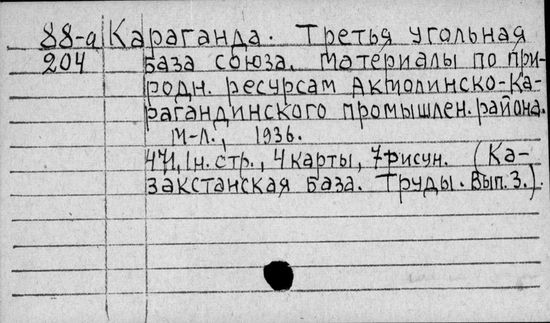 88-а Караганда. Третья угольная
204 база союза. Материалы по при-
родн. ресурсам Акмолинско-Ка-
рагандинского промышлен. района.
М-Л., 1936.
471, 1н. стр., 4 карты, 7 рисун. (Ка-
закстанская база. Труды. Вып. 3.).